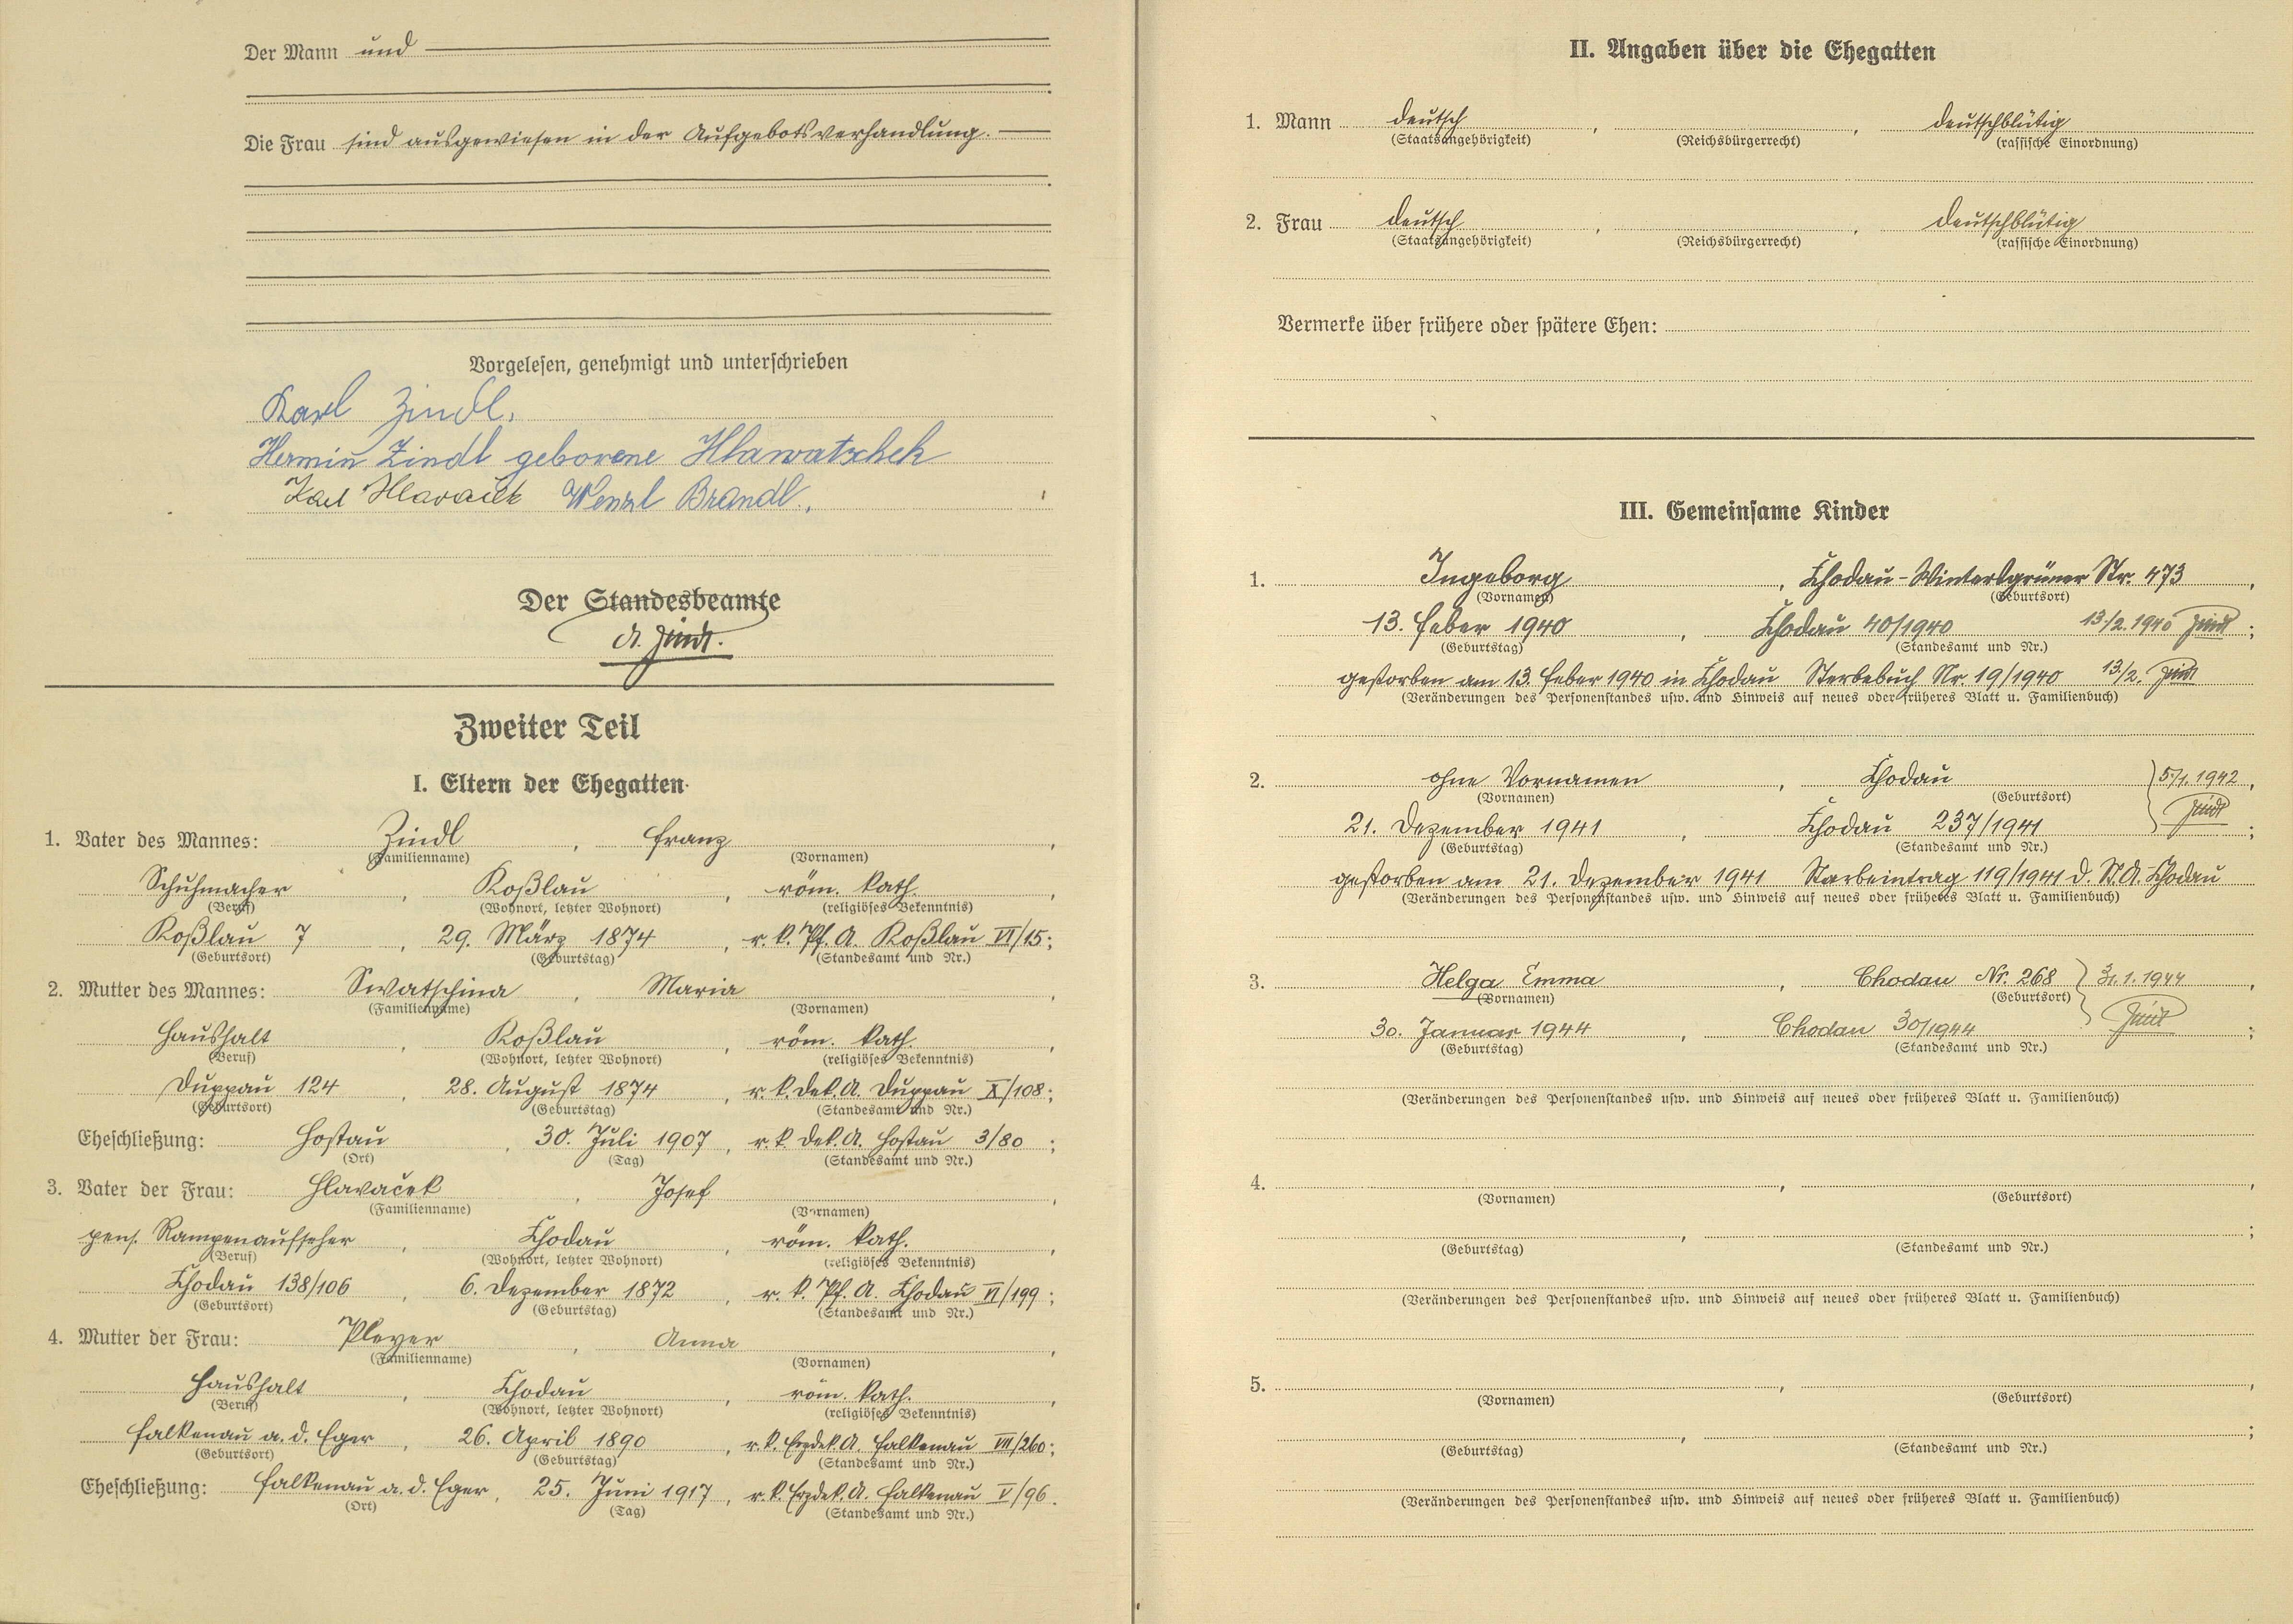 Der Mann und
Die Frau sind ausgewiesen in der Aufgebotsverhandlung.
Vorgelesen, genehmigt und unterschrieben
Karl Zindl.
Hermin Zindl geborene Hlawatschek
Karl Hlavaček Wenzl Brandl.
Der Standesbeamte
Zweiter Teil
I. Eltern der Ehegatten
1. Vater des Mannes: Zindl, Franz,
(Familienname) (Vornamen)
Schuhmacher, Roßlau, röm. kath.,
(Beruf) (Wohnort, letzter Wohnort) (religiöses Bekenntnis)
Roßlau 7, 29. März 1874, r. k. Pf. A. Roßlau VI/15;
(Geburtsort) (Geburtstag) (Standesamt und Nr.)
2. Mutter des Mannes: Swatschina, Maria,
(Familienname) (Vornamen)
Haushalt, Roßlau, röm. kath.,
(Beruf) (Wohnort, letzter Wohnort) (religiöses Bekenntnis)
Duppau 124, 28. August 1874, r. k. Dek. A. Duppau X/108;
(Geburtsort) (Geburtstag) (Standesamt und Nr.)
Eheschließung: Hostau, 30. Juli 1907, r. k. Dek. A. Hostau 3/80;
(Ort) (Tag) (Standesamt und Nr.)
3. Vater der Frau: Hlavaček, Josef,
(Familienname) (Vornamen)
pens. Rampenaufseher, Chodau, röm. kath.,
(Beruf) (Wohnort, letzter Wohnort) (religiöses Bekenntnis)
Chodau 138/106, 6. Dezember 1872, r. k. Pf. A. Chodau VI/199;
(Geburtsort) (Geburtstag) (Standesamt und Nr.)
4. Mutter der Frau: Pleyer, Anna,
(Familienname) (Vornamen)
Haushalt, Chodau, röm. kath.,
(Beruf) (Wohnort, letzter Wohnort) (religiöses Bekenntnis)
Falkenau a. d. Eger, 26. April 1890, r. k. Erzdek. A. Falkenau VIII/260;
(Geburtsort) (Geburtstag) (Standesamt und Nr.)
Eheschließung: Falkenau a. d. Eger, 25. Juni 1917, r. k. Erzdek. A. Falkenau V/96.
(Ort) (Tag) (Standesamt und Nr.)
II. Angaben über die Ehegatten
1. Mann deutsch, , deutschblütig
(Staatsangehörigkeit) (Reichsbürgerrecht) (rassische Einordnung)
2. Frau deutsch, , deutschblütig
(Staatsangehörigkeit) (Reichsbürgerrecht) (rassische Einordnung)
Vermerke über frühere oder spätere Ehen:
III. Gemeinsame Kinder
1. Ingeborg, Chodau-Wintersgrüner Str. 473,
(Vornamen) (Geburtsort)
13. Feber 1940, Chodau 40/1940 13./2. 1940;
(Geburtstag) (Standesamt und Nr.)
gestorben am 13. Feber 1940 in Chodau Sterbebuch Nr. 19/1940 13./2.
(Veränderungen des Personenstandes usw. und Hinweis auf neues oder früheres Blatt u. Familienbuch)
2. ohne Vornamen, Chodau 5./1. 1942,
(Vornamen) (Geburtsort)
21. Dezember 1941, Chodau 237/1941;
(Geburtstag) (Standesamt und Nr.)
gestorben am 21. Dezember 1941 Sterbeintrag 119/1941 d. St. A. Chodau
(Veränderungen des Personenstandes usw. und Hinweis auf neues oder früheres Blatt u. Familienbuch)
3. Helga Emma, Chodau Nr. 268 31. 1. 1944,
(Vornamen) (Geburtsort)
30. Januar 1944, Chodau 30/1944;
(Geburtstag) (Standesamt und Nr.)
(Veränderungen des Personenstandes usw. und Hinweis auf neues oder früheres Blatt u. Familienbuch)
4. , ,
(Vornamen) (Geburtsort)
, ;
(Geburtstag) (Standesamt und Nr.)
(Veränderungen des Personenstandes usw. und Hinweis auf neues oder früheres Blatt u. Familienbuch)
5. , ,
(Vornamen) (Geburtsort)
, ;
(Geburtstag) (Standesamt und Nr.)
(Veränderungen des Personenstandes usw. und Hinweis auf neues oder früheres Blatt u. Familienbuch)